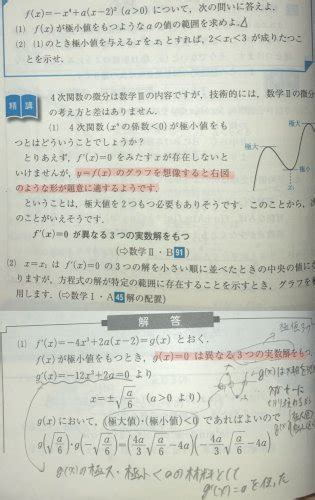 f(x)=−x⁴+a(x−2)² (a>0) について，次の問いに答えよ．
(1) f(x) が極小値をもつような a の値の範囲を求めよ．
(2) (1)のとき極小値を与える x を x₁ とすれば，2<x₁<3 が成りたつこ
とを示せ．
精講
4次関数の微分は数学Ⅲの内容ですが，技術的には，数学Ⅱの微分
の考え方と差はありません．
(1) 4次関数 (x⁴ の係数<0) が極小値をも
つとはどういうことでしょうか？
とりあえず，f′(x)=0 をみたす x が存在しないと
いけませんが，y=f(x) のグラフを想像すると右図
のような形が題意に適するようです．
ということは，極大値を2つもつ必要もありそうです．このことから，次
のことがいえそうです．
f′(x)=0 が異なる3つの実数解をもつ
(⇨数学Ⅱ・B 91)
極大
極大
x₁
極小
(2) x=x₁ は f′(x)=0 の3つの解を小さい順に並べたときの中央の値に
ますが，方程式の解が特定の範囲に存在することを示すとき，グラフを
用します．(⇨数学Ⅰ・A 45 解の配置)
解答
(1) f′(x)=−4x³+2a(x−2)=g(x) とおく．
f(x) が極小値をもつとき，g(x)=0 は異なる3つの実数解をもつ．
g′(x)=−12x²+2a=0 より
x=±√(a/6) (a>0 より)
g(x) において，(極大値)・(極小値)<0 であればよいので
g(√(a/6))・g(−√(a/6))=(4a/3 √(a/6) −4a)(−4a/3 √(a/6) −4a)
g(x)の極大・極小<0の材料として
g′(x)=0 を使った